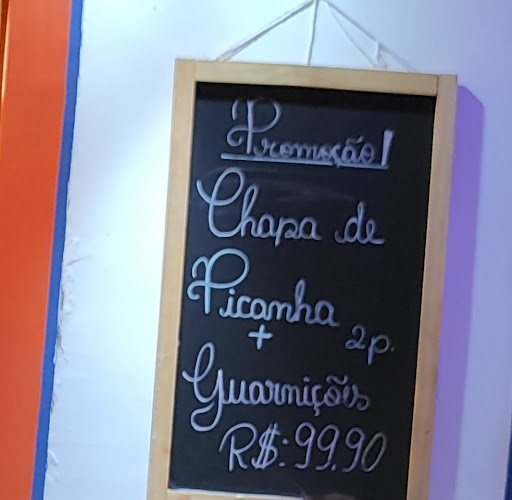 Promoção!
Chapa de
Picanha
+ 2p.
Guarnições
R$:99,90